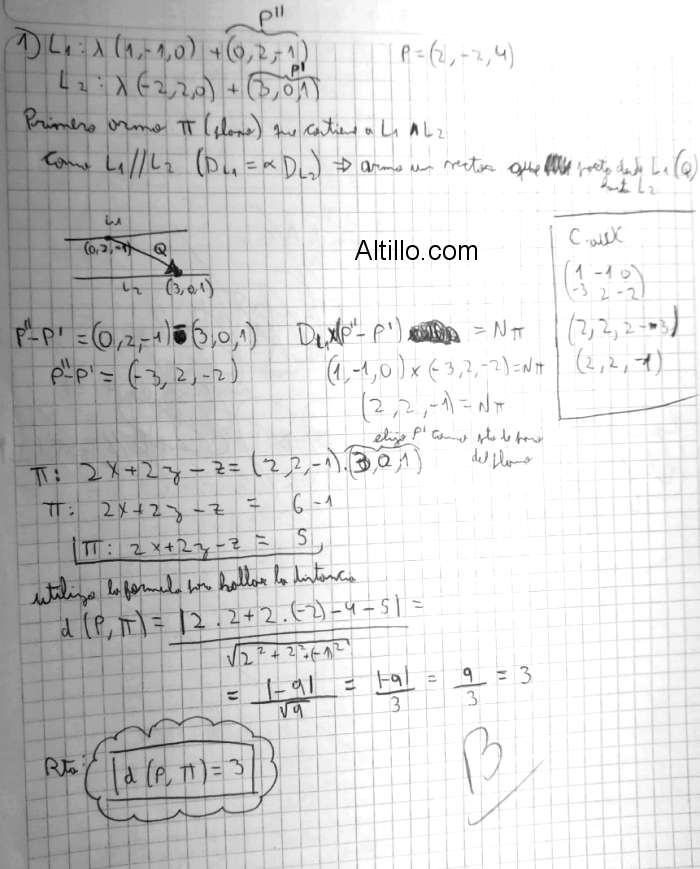 P''
1) L₁: λ(1,-1,0) + (0,2,-1)    P=(2,-2,4)
P'
L₂: λ(-2,2,0) + (3,0,1)
Primero armo π (plano) que contiene a L₁ ∧ L₂
Como L₁//L₂ (DL₁ = α DL₂) ⇒ armo un vector que desde L₁ (Q)
hasta L₂
L₁
(0,2,-1) Q
L₂ (3,0,1)
Altillo.com
C. aux
(1 -1 0)
(-3 2 -2)
(2,2,2-3)
(2,2,-1)
P''-P' = (0,2,-1) - (3,0,1)    DL₁×(P''-P') = Nπ
P''-P' = (-3,2,-2)    (1,-1,0)×(-3,2,-2)=Nπ
(2,2,-1)=Nπ
elijo P' como pto de paso
del plano
π: 2x+2y-z=(2,2,-1).(3,0,1)
π: 2x+2y-z = 6-1
π: 2x+2y-z = 5
utilizo la formula para hallar la distancia
d(P,π) = |2.2+2.(-2)-4-5| =
√2²+2²+(-1)²
= |-9| = |-9| = 9 = 3
√9 3 3
Rta: d(P,π)=3
B